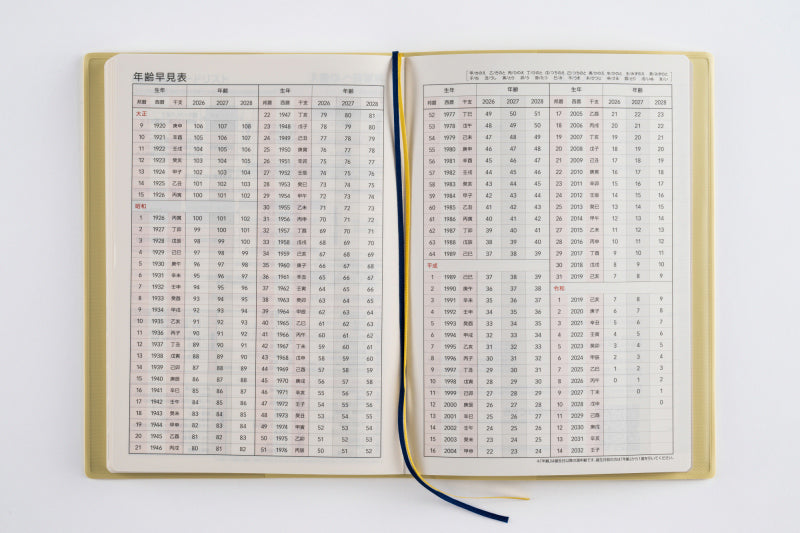 年齢早見表
生年 年齢
邦暦 西暦 干支 2026 2027 2028
大正
9 1920 庚申 106 107 108
10 1921 辛酉 105 106 107
11 1922 壬戌 104 105 106
12 1923 癸亥 103 104 105
13 1924 甲子 102 103 104
14 1925 乙丑 101 102 103
15 1926 丙寅 100 101 102
昭和
1 1926 丙寅 100 101 102
2 1927 丁卯 99 100 101
3 1928 戊辰 98 99 100
4 1929 己巳 97 98 99
5 1930 庚午 96 97 98
6 1931 辛未 95 96 97
7 1932 壬申 94 95 96
8 1933 癸酉 93 94 95
9 1934 甲戌 92 93 94
10 1935 乙亥 91 92 93
11 1936 丙子 90 91 92
12 1937 丁丑 89 90 91
13 1938 戊寅 88 89 90
14 1939 己卯 87 88 89
15 1940 庚辰 86 87 88
16 1941 辛巳 85 86 87
17 1942 壬午 84 85 86
18 1943 癸未 83 84 85
19 1944 甲申 82 83 84
20 1945 乙酉 81 82 83
21 1946 丙戌 80 81 82
生年 年齢
邦暦 西暦 干支 2026 2027 2028
22 1947 丁亥 79 80 81
23 1948 戊子 78 79 80
24 1949 己丑 77 78 79
25 1950 庚寅 76 77 78
26 1951 辛卯 75 76 77
27 1952 壬辰 74 75 76
28 1953 癸巳 73 74 75
29 1954 甲午 72 73 74
30 1955 乙未 71 72 73
31 1956 丙申 70 71 72
32 1957 丁酉 69 70 71
33 1958 戊戌 68 69 70
34 1959 己亥 67 68 69
35 1960 庚子 66 67 68
36 1961 辛丑 65 66 67
37 1962 壬寅 64 65 66
38 1963 癸卯 63 64 65
39 1964 甲辰 62 63 64
40 1965 乙巳 61 62 63
41 1966 丙午 60 61 62
42 1967 丁未 59 60 61
43 1968 戊申 58 59 60
44 1969 己酉 57 58 59
45 1970 庚戌 56 57 58
46 1971 辛亥 55 56 57
47 1972 壬子 54 55 56
48 1973 癸丑 53 54 55
49 1974 甲寅 52 53 54
50 1975 乙卯 51 52 53
51 1976 丙辰 50 51 52
生年 年齢
邦暦 西暦 干支 2026 2027 2028
52 1977 丁巳 49 50 51
53 1978 戊午 48 49 50
54 1979 己未 47 48 49
55 1980 庚申 46 47 48
56 1981 辛酉 45 46 47
57 1982 壬戌 44 45 46
58 1983 癸亥 43 44 45
59 1984 甲子 42 43 44
60 1985 乙丑 41 42 43
61 1986 丙寅 40 41 42
62 1987 丁卯 39 40 41
63 1988 戊辰 38 39 40
64 1989 己巳 37 38 39
平成
1 1989 己巳 37 38 39
2 1990 庚午 36 37 38
3 1991 辛未 35 36 37
4 1992 壬申 34 35 36
5 1993 癸酉 33 34 35
6 1994 甲戌 32 33 34
7 1995 乙亥 31 32 33
8 1996 丙子 30 31 32
9 1997 丁丑 29 30 31
10 1998 戊寅 28 29 30
11 1999 己卯 27 28 29
12 2000 庚辰 26 27 28
13 2001 辛巳 25 26 27
14 2002 壬午 24 25 26
15 2003 癸未 23 24 25
16 2004 甲申 22 23 24
生年 年齢
邦暦 西暦 干支 2026 2027 2028
17 2005 乙酉 21 22 23
18 2006 丙戌 20 21 22
19 2007 丁亥 19 20 21
20 2008 戊子 18 19 20
21 2009 己丑 17 18 19
22 2010 庚寅 16 17 18
23 2011 辛卯 15 16 17
24 2012 壬辰 14 15 16
25 2013 癸巳 13 14 15
26 2014 甲午 12 13 14
27 2015 乙未 11 12 13
28 2016 丙申 10 11 12
29 2017 丁酉 9 10 11
30 2018 戊戌 8 9 10
31 2019 己亥 7 8 9
令和
1 2019 己亥 7 8 9
2 2020 庚子 6 7 8
3 2021 辛丑 5 6 7
4 2022 壬寅 4 5 6
5 2023 癸卯 3 4 5
6 2024 甲辰 2 3 4
7 2025 乙巳 1 2 3
8 2026 丙午 0 1 2
9 2027 丁未 0 1
10 2028 戊申 0
11 2029 己酉
12 2030 庚戌
13 2031 辛亥
14 2032 壬子